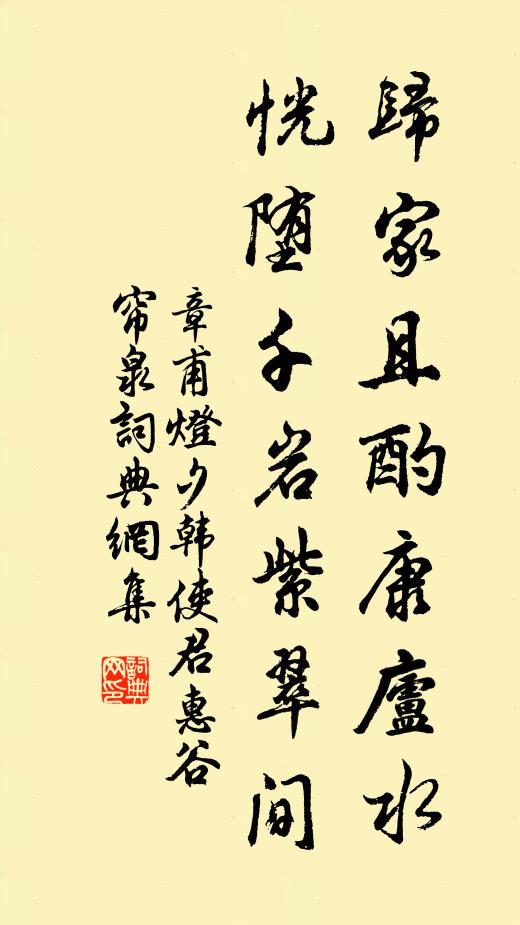 歸家且酌康廬水
恍墮千岩紫翠間
章甫燈夕韩使君惠谷
帘泉詞典網集
詞典網印